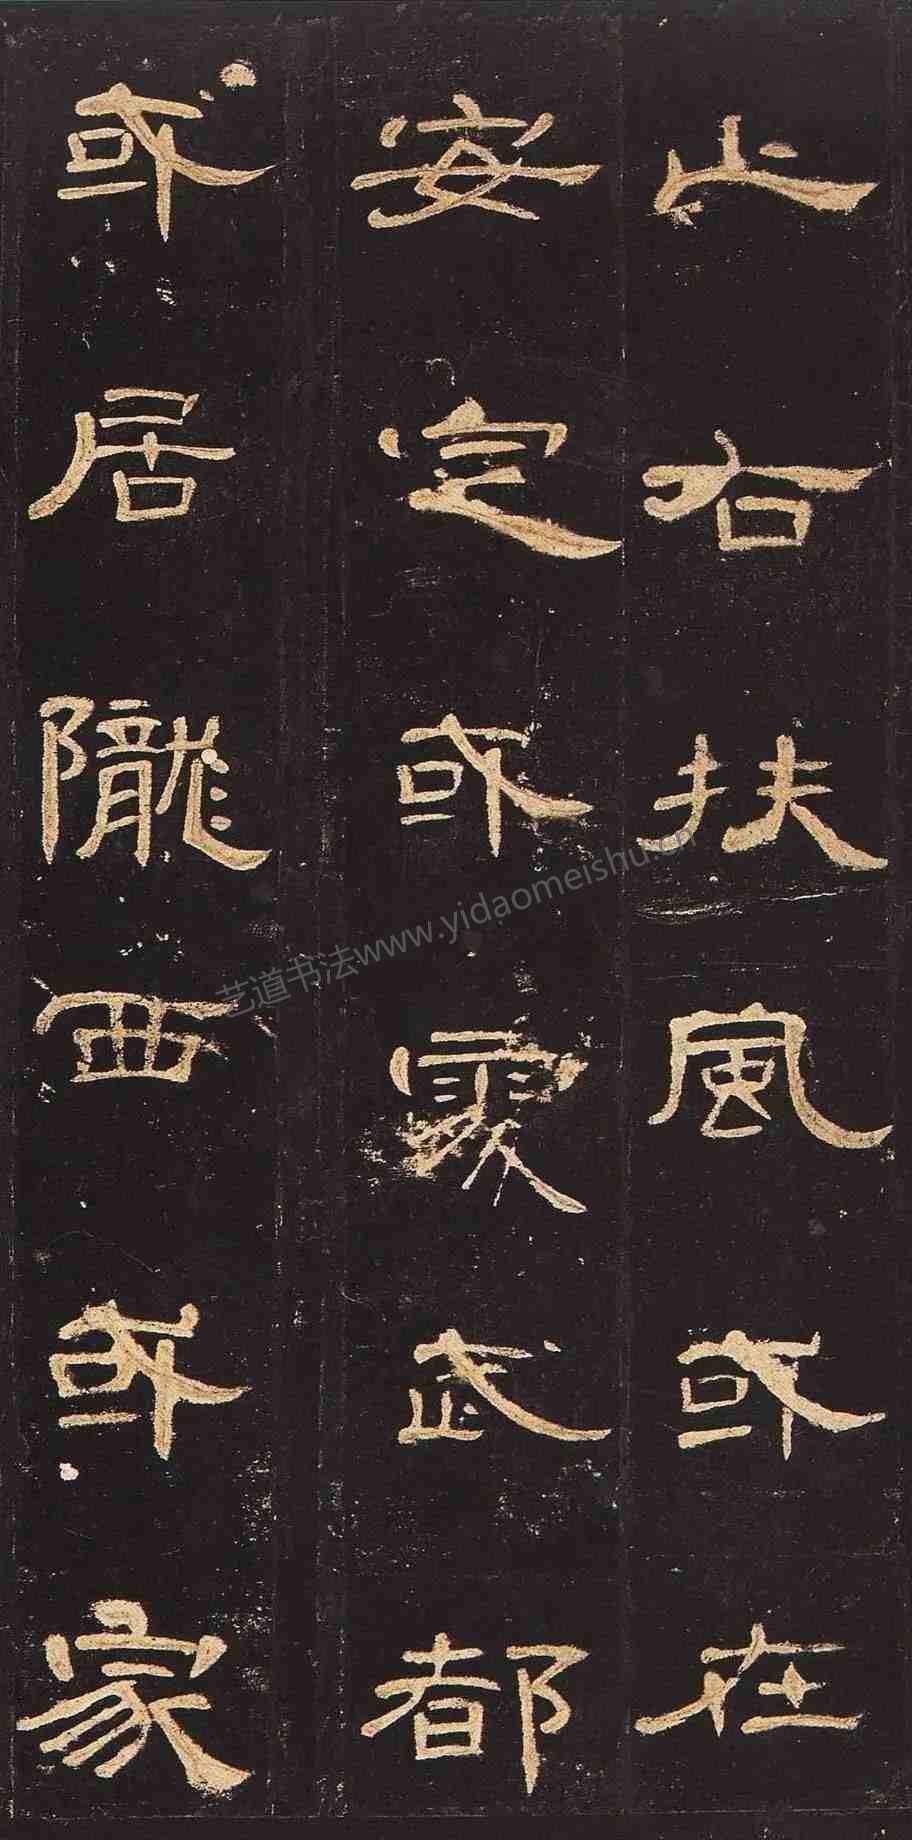 止右扶風或在
安定或處武都
或居隴西或家
艺道书法www.yidaomeishu.cn